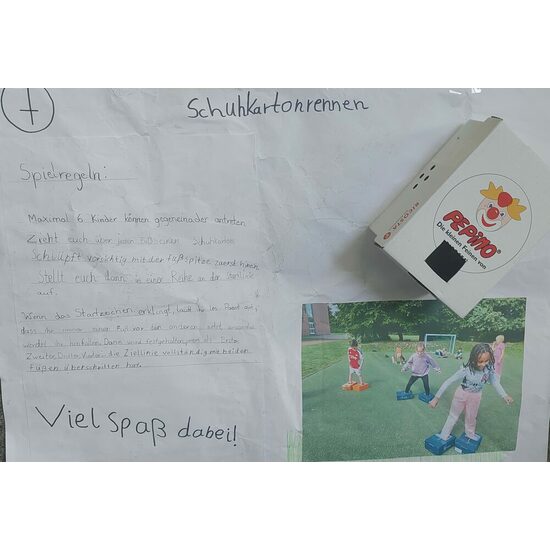 7
Schuhkartonrennen
Spielregeln:
Maximal 6 Kinder können gegeneinader antreten
Zieht euch über jeden Fuß einen Schuhkarton
Schlüpft vorsichtig mit der Fußspitze zuerst hinein
Stellt euch dann in einer Reihe an der Startlinie
auf.
Wenn das Startzeichen erklingt, lauft ihr los. Passt auf,
dass ihr immer einen Fuß vor den anderen setzt
werdet ihr Dann wird festgehalten, wer als Erster
Zweiter, Dritter die Ziellinie vollständig mit beiden
Füßen überschritten hat.
Viel Spaß dabei!
PEPINO
Die kleinen Feinen von
RICOSTA